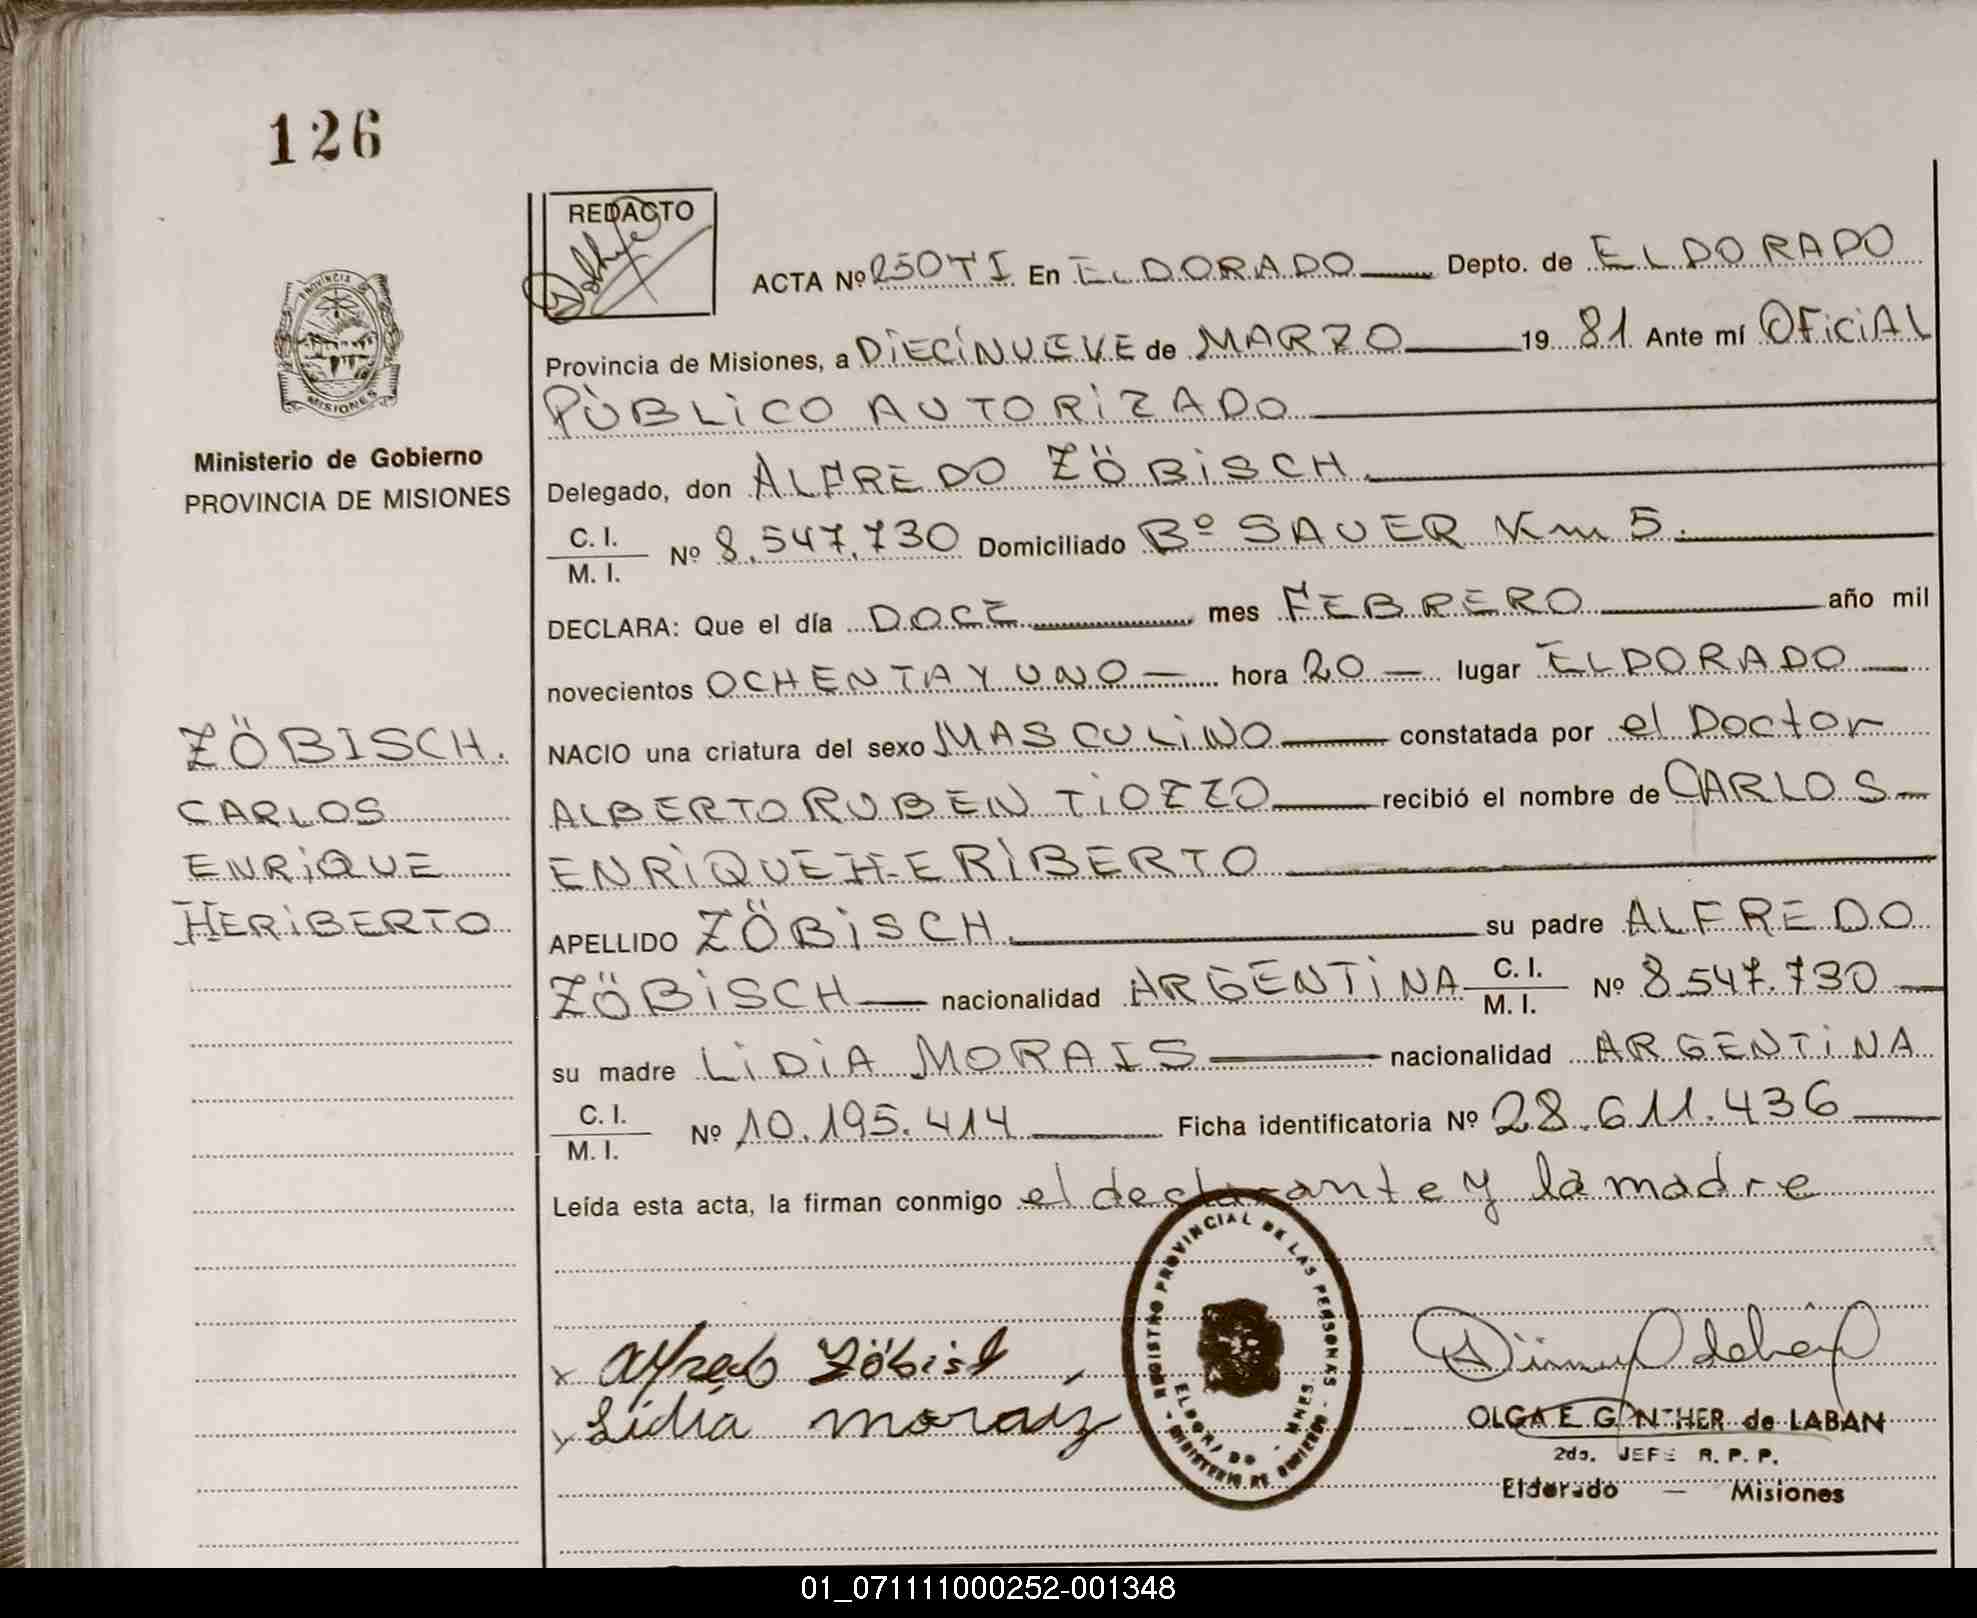 126
REDACTO
ACTA Nº 250TI En ELDORADO Depto. de ELDORADO
Provincia de Misiones, a DIECINUEVE de MARZO 19 81 Ante mí OFICIAL
PÙBLICO AUTORIZADO
Delegado, don ALFREDO ZÖBISCH.
C. I.
M. I.
Nº 8.547.730 Domiciliado Bº SAUER Km 5.
DECLARA: Que el día DOCE mes FEBRERO año mil
novecientos OCHENTA Y UNO — hora 20 — lugar ELDORADO
NACIO una criatura del sexo MASCULINO constatada por el Doctor
ALBERTO RUBEN TIOZZO recibió el nombre de CARLOS
ENRIQUE HERIBERTO
APELLIDO ZÖBISCH. su padre ALFREDO
ZÖBISCH nacionalidad ARGENTINA C. I.
M. I.
Nº 8.547.730
su madre LIDIA MORAIS nacionalidad ARGENTINA
C. I.
M. I.
Nº 10.195.414 Ficha identificatoria Nº 28.611.436
Leída esta acta, la firman conmigo el declarante y la madre
x Alfredo Zöbisch
x Lidia moraiz
PROVINCIA
MISIONES
Ministerio de Gobierno
PROVINCIA DE MISIONES
ZÖBISCH.
CARLOS
ENRIQUE
HERIBERTO
REGISTRO PROVINCIAL DE LAS PERSONAS
ELDORADO - MNES.
- MINISTERIO DE GOBIERNO -
OLGA E. GÜNTHER de LABAN
2do. JEFE R. P. P.
Eldorado — Misiones
01_071111000252-001348